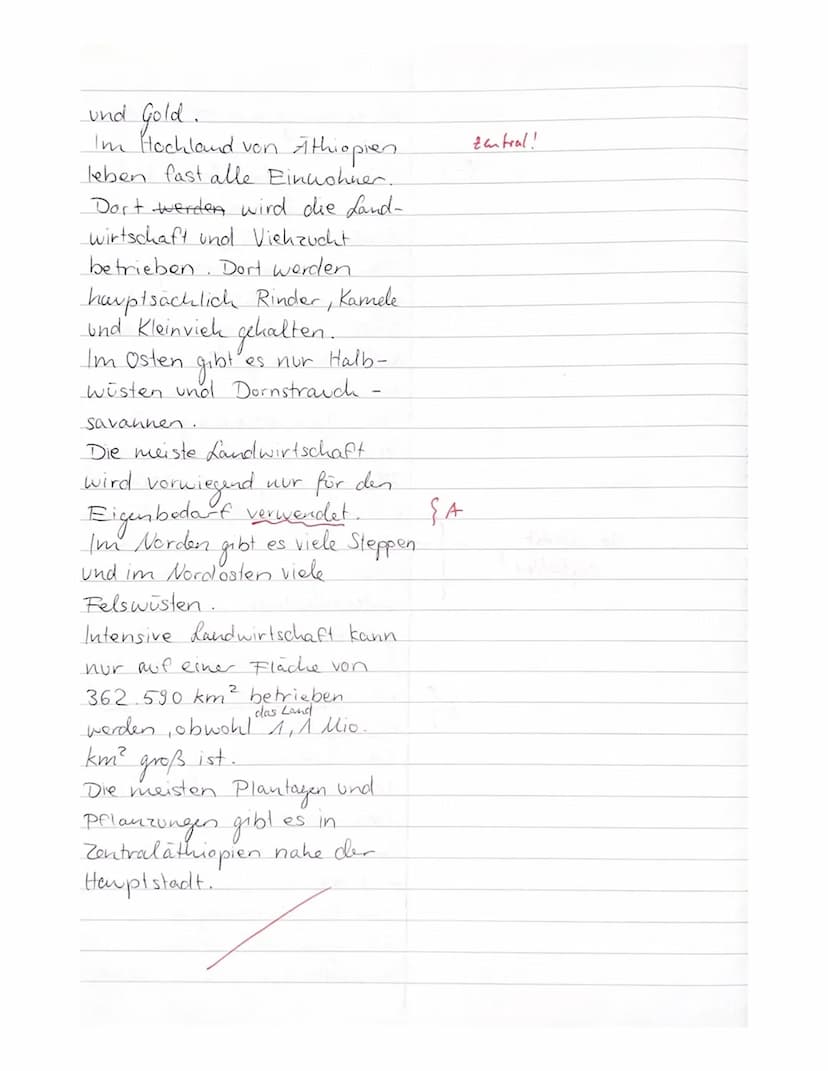 und Gold.
Im Hochland von Äthiopien
zentral!
leben fast alle Einwohner.
Dort werden wird die Land-
wirtschaft und Viehzucht
betrieben. Dort werden
hauptsächlich Rinder, Kamele
und Kleinvieh gehalten.
Im Osten gibt es nur Halb-
wüsten und Dornstrauch-
savannen.
Die meiste Landwirtschaft
wird vorwiegend nur für den
Eigenbedarf verwendet.
{ A
Im Norden gibt es viele Steppen
und im Nordosten viele
Felswüsten.
Intensive Landwirtschaft kann
nur auf einer Fläche von
362.590 km² betrieben
werden, obwohl das Land 1,1 Mio.
km² groß ist.
Die meisten Plantagen und
Pflanzungen gibt es in
Zentraläthiopien nahe der
Hauptstadt.